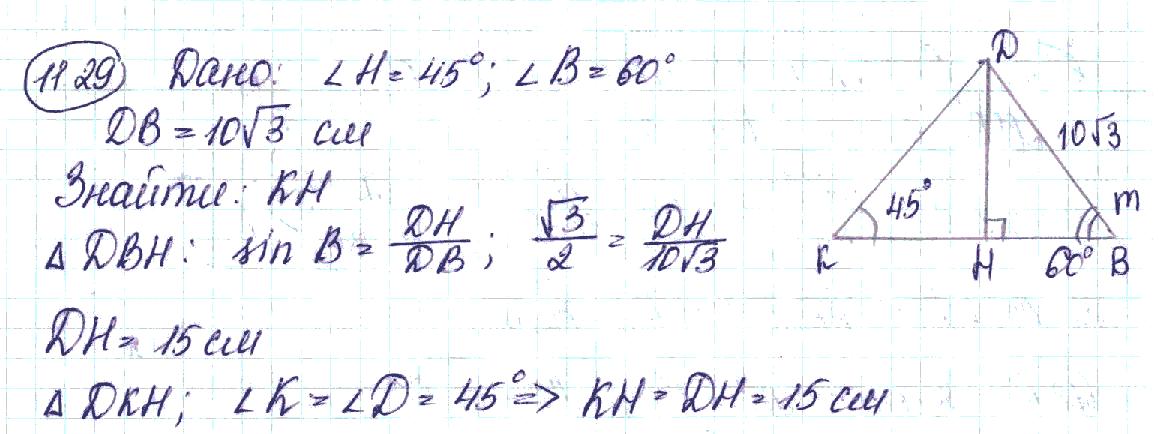 1129 Дано: ∠H = 45°; ∠B = 60°
DB = 10√3 см
Знайти: KH
Δ DBH: sin B = DH/DB; √3/2 = DH/10√3
DH = 15 см
Δ DKH; ∠K = ∠D = 45° => KH = DH = 15 см
D
10√3
45°
m
K H 60° B